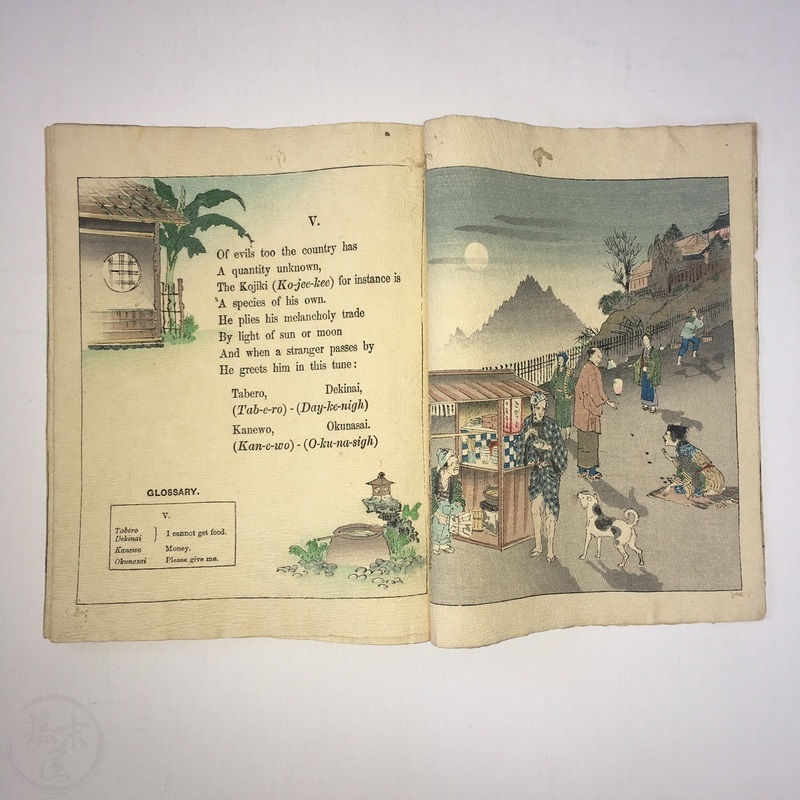 V.
Of evils too the country has
A quantity unknown,
The Kojiki (Ko-jee-kee) for instance is
A species of his own.
He plies his melancholy trade
By light of sun or moon
And when a stranger passes by
He greets him in this tune:
Tabero, Dekinai,
(Tab-e-ro) - (Day-ke-nigh)
Kanewo, Okunasai.
(Kan-e-wo) - (O-ku-na-sigh)
GLOSSARY.
V.
Tabero
Dekinai } I cannot get food.
Kanewo Money.
Okunasai Please give me.
幕末屋